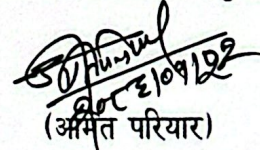 २०८३/०१/२२
(अमित परियार)